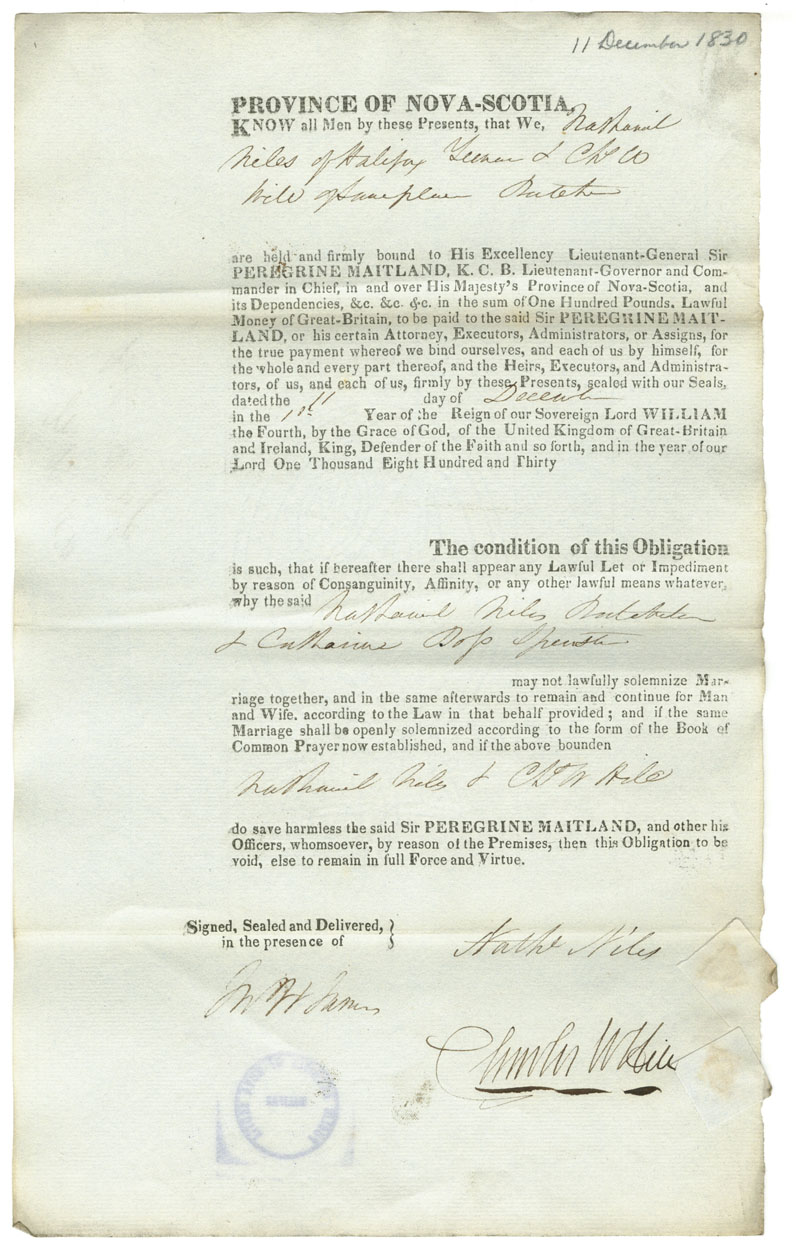 11 December 1830
PROVINCE OF NOVA-SCOTIA,
KNOW all Men by these Presents, that We, Nathaniel
Niles of Halifax & Chs W
Hill of same place Butcher
are held and firmly bound to His Excellency Lieutenant-General Sir
PEREGRINE MAITLAND, K. C. B. Lieutenant-Governor and Com-
mander in Chief, in and over His Majesty's Province of Nova-Scotia, and
its Dependencies, &c. &c. &c. in the sum of One Hundred Pounds. Lawful
Money of Great-Britain, to be paid to the said Sir PEREGRINE MAIT-
LAND, or his certain Attorney, Executors, Administrators, or Assigns, for
the true payment whereof we bind ourselves, and each of us by himself, for
the whole and every part thereof, and the Heirs, Executors, and Administra-
tors, of us, and each of us, firmly by these Presents, sealed with our Seals,
dated the 11 day of December
in the 1st Year of the Reign of our Sovereign Lord WILLIAM
the Fourth, by the Grace of God, of the United Kingdom of Great-Britain
and Ireland, King, Defender of the Faith and so forth, and in the year of our
Lord One Thousand Eight Hundred and Thirty
The condition of this Obligation
is such, that if hereafter there shall appear any Lawful Let or Impediment
by reason of Consanguinity, Affinity, or any other lawful means whatever,
why the said Nathaniel Niles Batchelor
& Catharine Boss Spinster
may not lawfully solemnize Mar-
riage together, and in the same afterwards to remain and continue for Man
and Wife. according to the Law in that behalf provided; and if the same
Marriage shall be openly solemnized according to the form of the Book of
Common Prayer now established, and if the above bounden
Nathaniel Niles & Chs W Hill
do save harmless the said Sir PEREGRINE MAITLAND, and other his
Officers, whomsoever, by reason of the Premises, then this Obligation to be
void, else to remain in full Force and Virtue.
Signed, Sealed and Delivered, }
in the presence of
Nathl Niles
James
Charles W Hill